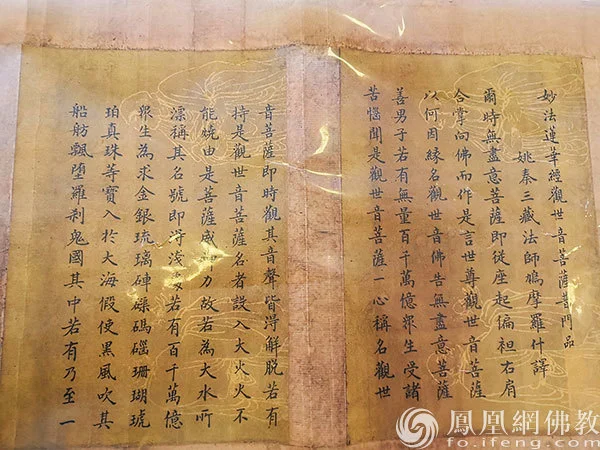 妙法蓮華經觀世音菩薩普門品
姚秦三藏法師鳩摩羅什譯
爾時無盡意菩薩即從座起偏袒右肩
合掌向佛而作是言世尊觀世音菩薩
以何因緣名觀世音佛告無盡意菩薩
善男子若有無量百千萬億眾生受諸
苦惱聞是觀世音菩薩一心稱名觀世
音菩薩即時觀其音聲皆得解脫若有
持是觀世音菩薩名者設入大火火不
能燒由是菩薩威神力故若為大水所
漂稱其名號即得淺處若有百千萬億
眾生為求金銀琉璃硨磲碼碯珊瑚琥
珀真珠等寶入於大海假使黑風吹其
船舫飄墮羅剎鬼國其中若有乃至一
鳳凰網佛教
fo.ifeng.com